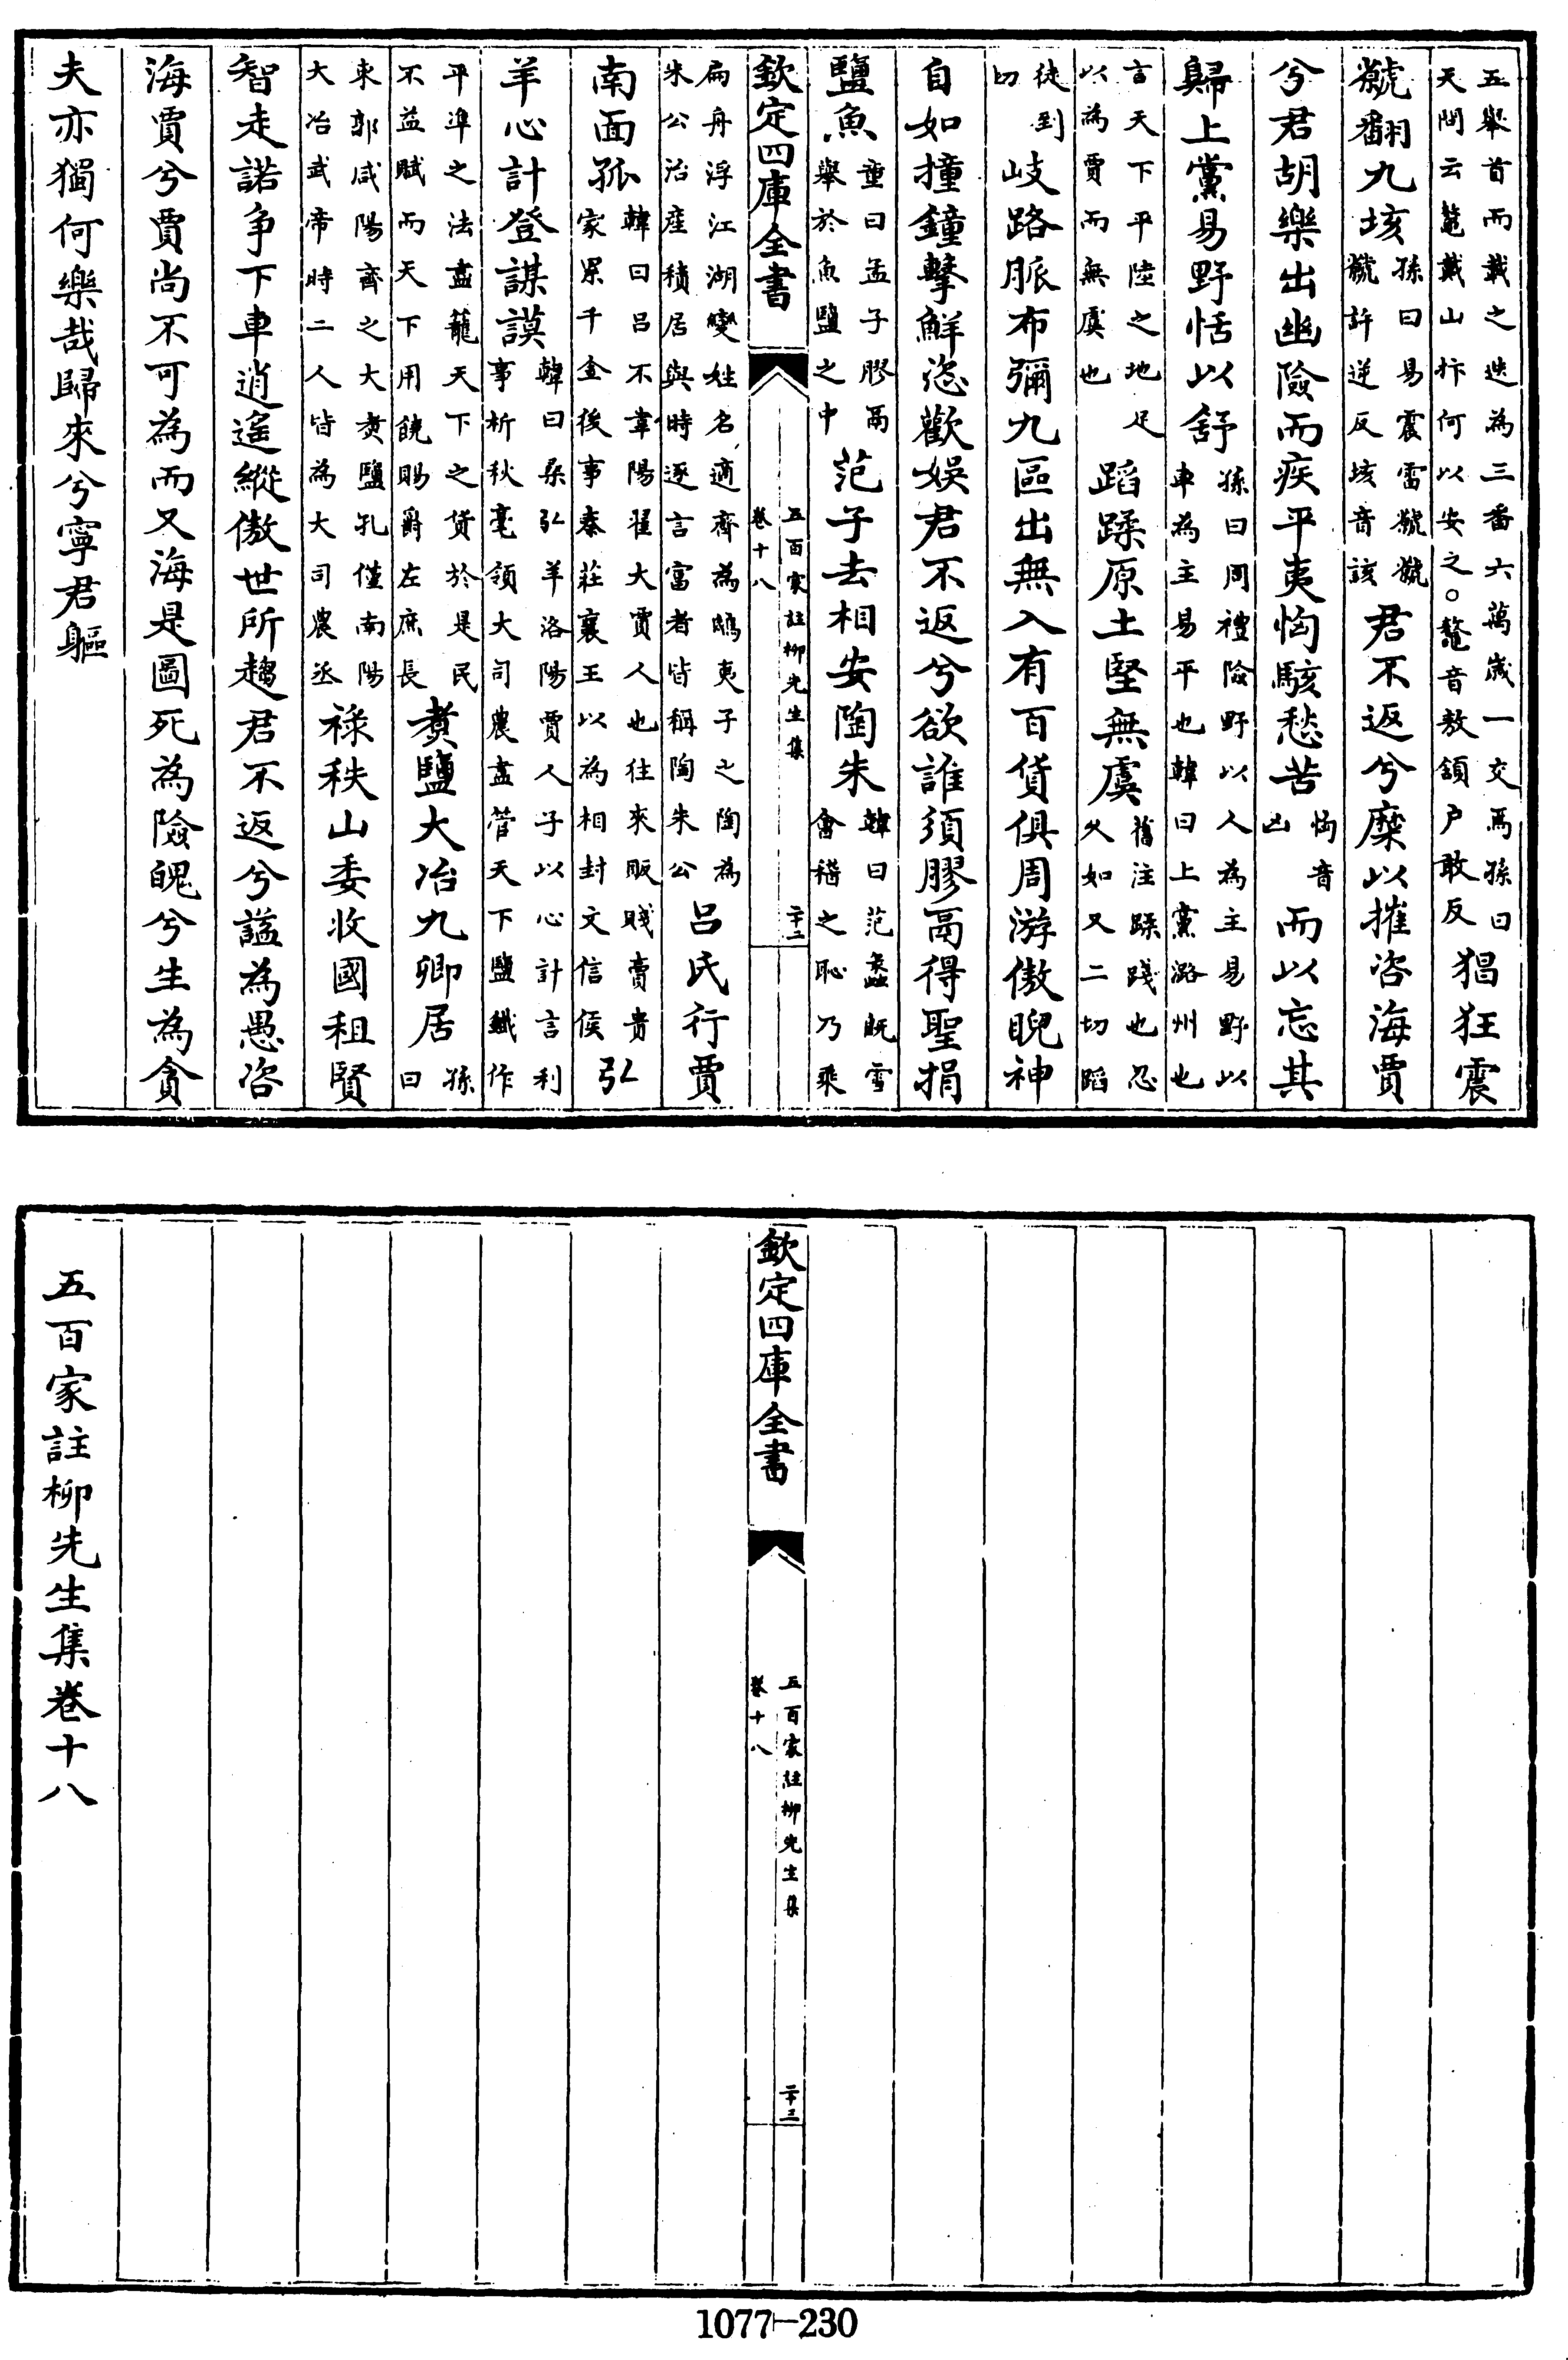 五舉首而載之迭為三番六萬歲一交焉孫曰
天問云鼇戴山抃何以安之○鼇音敖頷户敢反
猖狂震
虩翻九垓
孫曰易震雷虩虩
虩許逆反垓音該
君不返兮糜以摧咨海賈
兮君胡樂出幽險而疾平夷恟駭愁苦
恟音
凶
而以忘其
歸上黨易野恬以舒
孫曰周禮險野以人為主易野以
車為主易平也韓曰上黨潞州也
言天下平陸之地足
以為賈而無虞也
蹈蹂原土堅無虞
舊注蹂踐也忍
乆如又二切蹈
徒到
切
岐路脈布彌九區出無入有百貨俱周游傲睨神
自如撞鐘擊鮮恣歡娛君不返兮欲誰須膠鬲得聖捐
鹽魚
童曰孟子膠鬲
舉於魚鹽之中
范子去相安陶朱
韓曰范蠡既雪
會稽之恥乃乘
欽定四庫全書
五百家註柳先生集
卷十八
二十二
扁舟浮江湖變姓名適齊為鴟夷子之陶為
朱公治產積居與時逐言富者皆稱陶朱公
呂氏行賈
南面孤
韓曰呂不韋陽翟大賈人也往來販賤賣貴
家累千金後事秦莊襄王以為相封文信侯
弘
羊心計登謀謨
韓曰桑弘羊洛陽賈人子以心計言利
事析秋毫領大司農盡管天下鹽鐵作
平準之法盡籠天下之貨於是民
不益賦而天下用饒賜爵左庶長
煮鹽大冶九卿居
孫
曰
東郭咸陽齊之大煮鹽孔僅南陽
大冶武帝時二人皆為大司農丞
祿秩山委收國租賢
智走諾争下車逍遙縱傲世所趨君不返兮謚為愚咨
海賈兮賈尚不可為而又海是圖死為險魄兮生為貪
夫亦獨何樂哉歸來兮寧君軀
欽定四庫全書
五百家註柳先生集
卷十八
二十三
五百家註柳先生集卷十八
1077-230